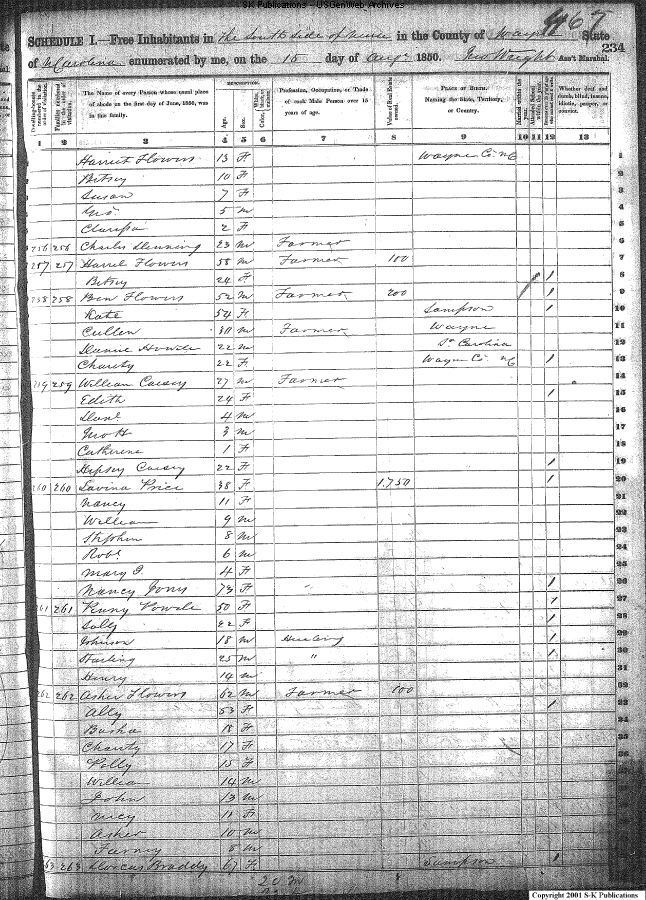 S-K Publications - USGenWeb Archives
467
SCHEDULE I.—Free Inhabitants in the South Side of Neuse in the County of Wayne State
234
of N Carolina enumerated by me, on the 15 day of Augt 1850. Jno Wright Ass't Marshal.
Dwelling-houses numbered in the order of visitation.
Families numbered in the order of visitation.
The Name of every Person whose usual place of abode on the first day of June, 1850, was in this family.
DESCRIPTION.
Age.
Sex.
Color, White, black, or mulatto.
Profession, Occupation, or Trade of each Male Person over 15 years of age.
Value of Real Estate owned.
PLACE OF BIRTH. Naming the State, Territory, or Country.
Married within the year.
Attended School within the year.
Whether deaf and dumb, blind, insane, idiotic, pauper, or convict.
1 2 3 4 5 6 7 8 9 10 11 12 13
Harriet Flowers 13 F Wayne Co. NC 1
Betsey 10 F 2
Susan 7 F 3
Geo. 5 M 4
Clarissa 2 F 5
256 256 Charles Denning 23 M Farmer 6
257 257 Harrel Flowers 58 M Farmer 100 7
Betsey 24 F / 8
258 258 Ben Flowers 52 M Farmer 200 / 9
Kate 54 F Sampson / 10
Cullen 30 M Farmer Wayne 11
Howele 22 M So Carolina 12
Charity 22 F Wayne Co. NC / 13
259 259 William Casey 27 M Farmer 14
Edith 24 F / 15
4 M 16
Jno H 3 M 17
Catherine 1 F 18
Hepsey Casey 22 F / 19
260 260 Lavina Price 38 F 1.750 / 20
Nancy 11 F 21
William 9 M 22
Stephen 8 M 23
Robt 6 M 24
Mary J. 4 F 25
Nancy 73 F / 26
261 261 Penny Powele 50 F / 27
Sally 22 F / 28
Johnson 18 M / 29
Starling 25 M " / 30
Henry 14 M 31
262 262 Asher Flowers 62 M Farmer 100 32
Ally 53 F /
18 F
Charity 17 F
Polly 15 F
William 14 M
John 13 M
Nicy 11 F
Asher 10 M
8 M
263 263 Dorcas Braddy 67 F Sampson /
20 M
Copyright 2001 S-K Publications